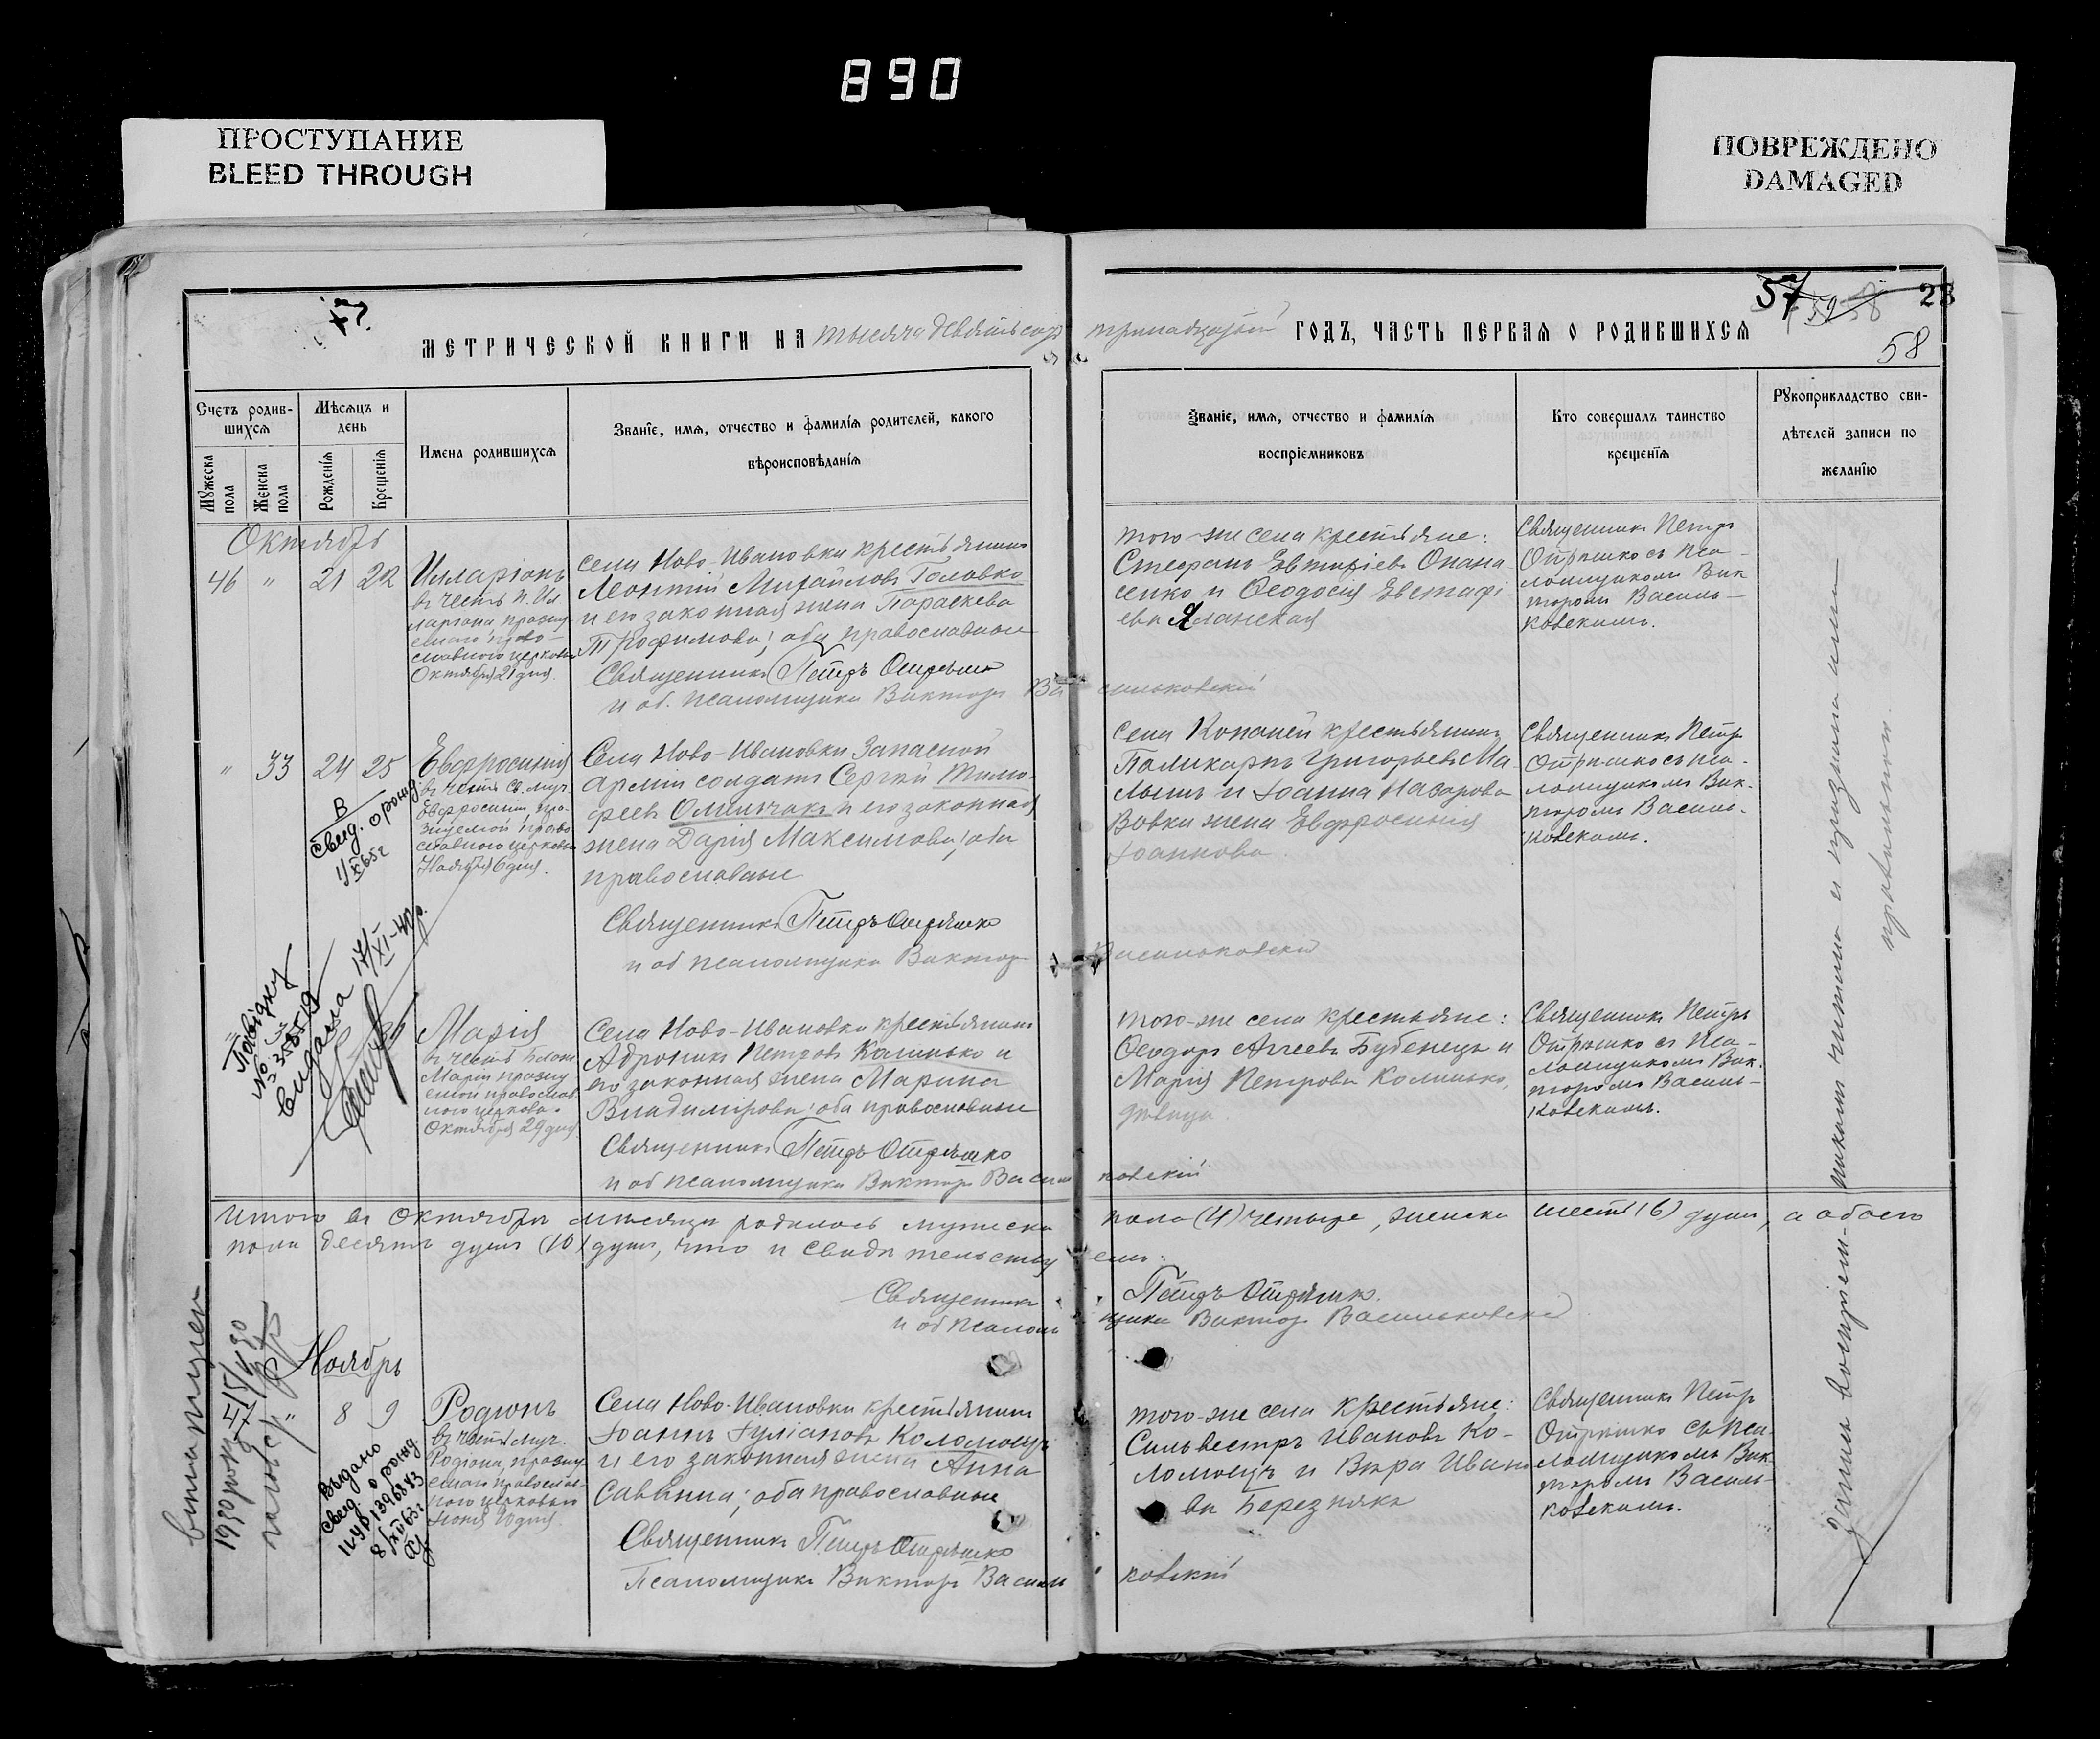 890
ПРОСТУПАНИЕ
BLEED THROUGH
ПОВРЕЖДЕНО
DAMAGED
57
58
28
58
МЕТРИЧЕСКОЙ КНИГИ НА тысяча девятьсотъ тринадцатый ГОДЪ, ЧАСТЬ ПЕРВАЯ О РОДИВШИХСЯ
Счетъ родив-
шихся
Мужеска пола
Женска пола
Мѣсяцъ и
день
Рожденія
Крещенія
Имена родившихся
Званіе, имя, отчество и фамилія родителей, какого
вѣроисповѣданія
Званіе, имя, отчество и фамилія
воспріемниковъ
Кто совершалъ таинство
крещенія
Рукоприкладство сви-
дѣтелей записи по
желанію
Октябрь
46 " 21 22
Илларіонъ
въ честь п. Ил
ларіона празну
емаго право
славного церковью
Октября 21 дня.
села Ново-Ивановки крестьянинъ
Леонтій Михайловъ Головко
и его законная жена Параскева
Трофимова; оба православные
Священникъ Петръ Отрѣшко
и об. псаломщика Викторъ Васильковскій
того-же села крестьяне:
Стефанъ Евтихіевъ Опана
сенко и Ѳеодосія Евстафі
ева Яланская
Священникъ Петръ
Отрѣшко съ пса-
ломщикомъ Вик
торомъ Василь-
ковскимъ.
" 33 24 25
Евфросинія
въ честь Св. муч.
Евфросиніи, пра
зднуемой право
славного церковью
Ноября 6 дня.
Села Ново-Ивановки запасной
арміи солдатъ Сергѣй Тимо-
феевъ Омельчакъ и его законная
жена Дарія Максимова; оба
православные
Священникъ Петръ Отрѣшко
и об псаломщика Викторъ Васильковскій
села Копаней крестьянинъ
Поликарпъ Григорьевъ Ма-
лышъ и Іоанна Назарова
Вовка жена Евфросинія
Іоаннова
Священникъ Петръ
Отрѣшко съ пса-
ломщикомъ Вик-
торомъ Василь-
ковскимъ.
В
свид. о рожд
Повідку
№ 358519
видала 17/XI-40р.
Марія
въ честь
Маріи празну
емой православ
ного церкова-
Октября 29 дня
Села Ново-Ивановки крестьянинъ
Адроникъ Петровъ Калинько и
его законная жена Марина
Владимірова; оба православные
Священникъ Петръ Отрѣшко
и об псаломщика Викторъ Васильковскій
того-же села крестьяне:
Ѳеодоръ Агеевъ Бубенецъ и
Марія Петрова Калинько,
дѣвица
Священникъ Петръ
Отрѣшко съ Пса-
ломщикомъ Вик.
торомъ Василь-
ковскимъ.
Итого въ Октябрѣ мѣсяцѣ родилось мужеска пола (4) четыре, женска шесть (6) душъ, а обоего
пола десять душъ (10) душъ, что и свидѣтельствуемъ:
Священникъ Петръ Отрѣшко.
и об псаломщика Викторъ Васильковскій
Ноябрь
" 8 9
Родіонъ
въ честь муч.
Родіона, празну
емаго православ-
ного церковью
10 дня.
Села Ново-Ивановки крестьянинъ
Іоаннъ Іуліановъ Коломоецъ
и его законная жена Анна
Саввина; оба православные
Священникъ Петръ Отрѣшко
Псаломщикъ Викторъ Васильковскій
того-же села крестьяне:
Сильвестръ Ивановъ Ко-
ломоецъ и Вѣра Ивано
ва Березняка
Священникъ Петръ
Отрѣшко съ пса-
ломщикомъ Вик-
торомъ Василь-
ковскимъ.
Выдано
свид. о рожд
1396843